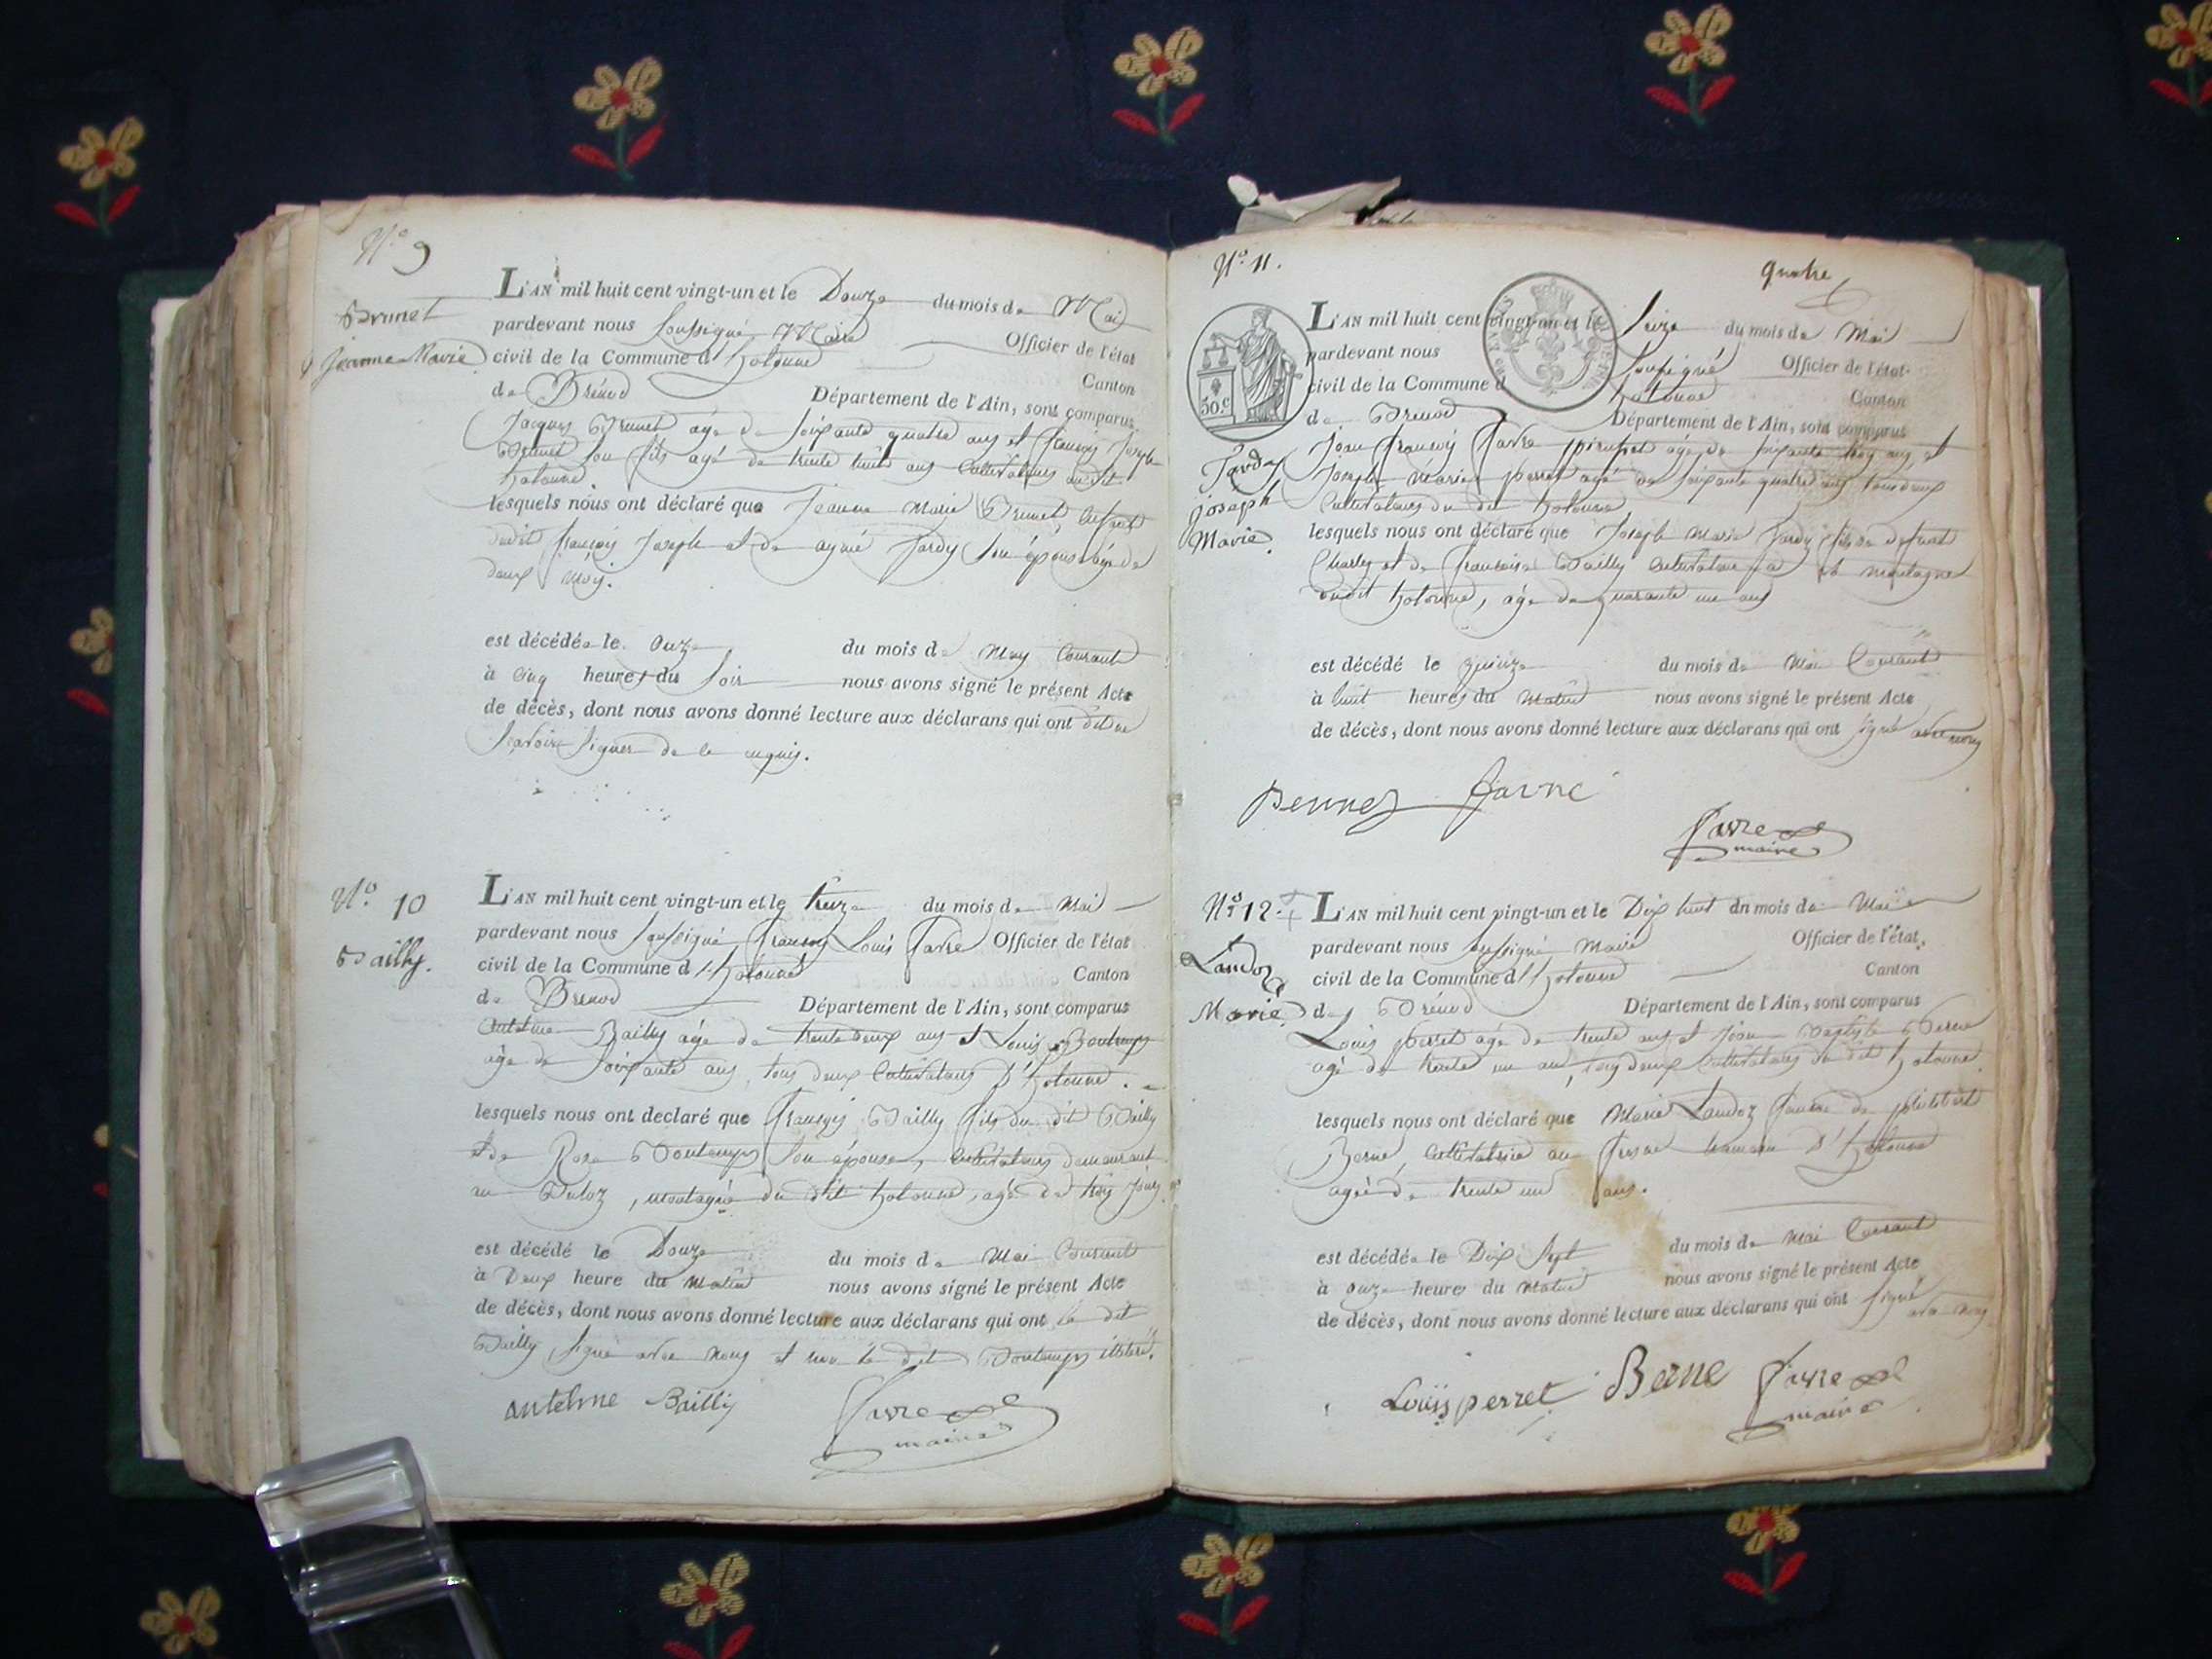 N.o 9
Brunet
Jeanne Marie
L'AN mil huit cent vingt-un et le Douze du mois de Mai
pardevant nous soussigné Maire Officier de l'état
civil de la Commune d'hotonne Canton
de Brénod Département de l'Ain, sont comparus
Jacques Brunet âgé de soixante quatre ans et françois Joseph
Brunet son fils agé de trente huit ans Cultivateurs du dit
hotonne.
lesquels nous ont déclaré que Jeanne Marie Brunet, enfant
dudit françois Joseph et de aymé Jardy son épouse âgée de
deux mois.
est décédée le onze du mois de May Courant
à cinq heures du soir nous avons signé le présent Acte
de décès, dont nous avons donné lecture aux déclarans qui ont dit ne
savoir signer de ce requis.
N.o 10
Bailly.
L'AN mil huit cent vingt-un et le treize du mois de Mai
pardevant nous soussigné françois Louis favre Officier de l'état
civil de la Commune d'hotonne Canton
de Brenod Département de l'Ain, sont comparus
Antelme Bailly âgé de trente deux ans et Louis Bontemps
âgé de soixante ans, tous deux Cultivateurs d'hotonne.
lesquels nous ont declaré que françois Bailly fils du dit Bailly
et de Rose Bontemps son épouse, Cultivateurs demeurant
au montagne du dit hotonne, agé de trois jours
est décédé le Douze du mois de Mai Courant
à Deux heure du matin nous avons signé le présent Acte
de décès, dont nous avons donné lecture aux déclarans qui ont le dit
Bailly signé avec nous et non le dit Bontemps illiteré.
antelme Bailly
favre
maire
N.o 11.
quatre
50.c
Jardy
joseph
Marie.
L'AN mil huit cent vingt-un et le Seize du mois de Mai
pardevant nous soussigné Officier de l'état
civil de la Commune d hotonne Canton
de Brenod Département de l'Ain, sont comparus
Jean françois favre âgé de soixante trois ans, et
Joseph Marie perret agé de soixante quatre ans tous deux
Cultivateurs du dit hotonne
lesquels nous ont déclaré que Joseph Marie Jardy fils de defunt
Charles et de françoise Bailly Cultivateur à la montagne
dudit hotonne, âgé de quarante un ans
est décédé le quinze du mois de Mai Courant
à huit heures du matin nous avons signé le présent Acte
de décès, dont nous avons donné lecture aux déclarans qui ont signé avec nous
favre
maire
N.o 12.
Landoz
Marie
L'AN mil huit cent vingt-un et le Dix huit du mois de Mai
pardevant nous soussigné Maire Officier de l'état
civil de la Commune d'hotonne Canton
de Brénod Département de l'Ain, sont comparus
Louis perret âgé de trente ans et Jean Baptiste Berne
agé de trente un ans, tous deux Cultivateurs du dit hotonne.
lesquels nous ont déclaré que Marie Landoz femme de philibert
Berne, Cultivatrice au hameau d'hotonne
agée de trente un ans.
est décédée le Dix sept du mois de Mai Courant
à onze heures du matin nous avons signé le présent Acte
de décès, dont nous avons donné lecture aux déclarans qui ont signé
avec nous
Louis perret Berne favre
maire